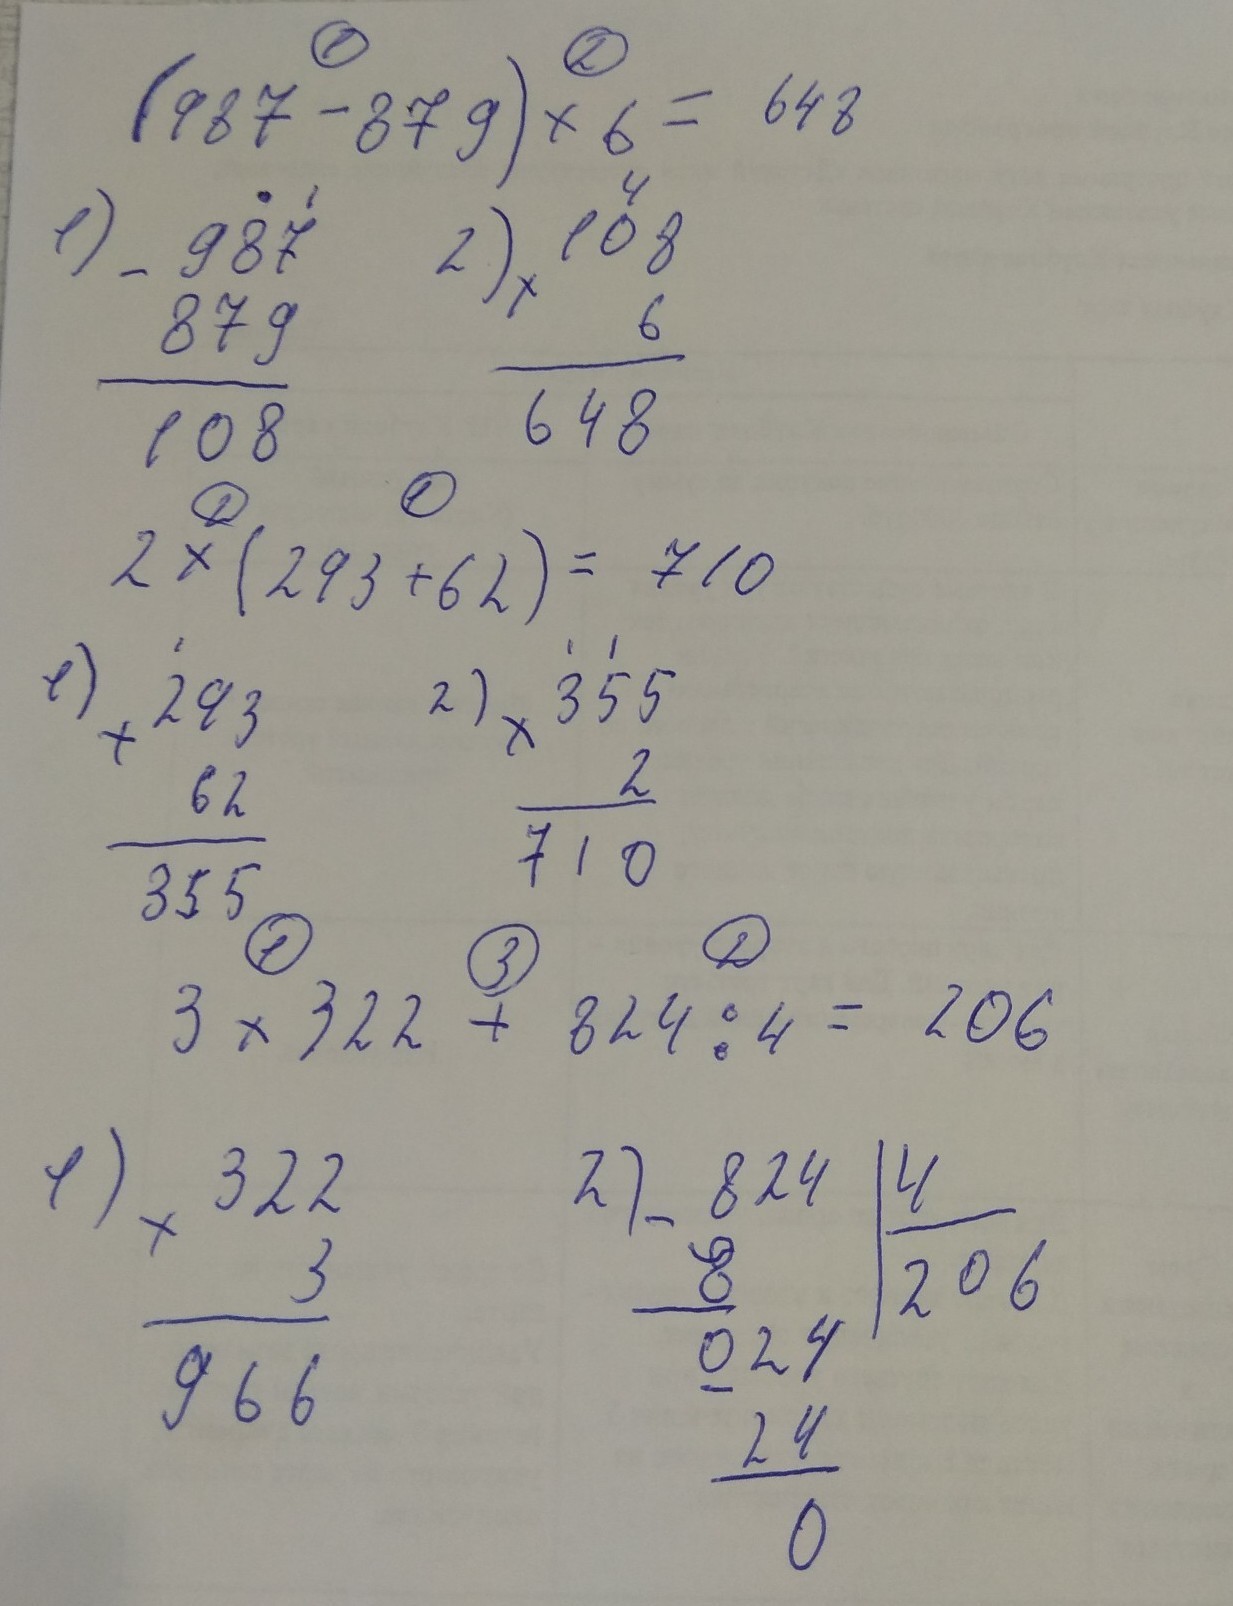 ① ②
(987 - 879) × 6 = 648
1) - 987 2) × 108
879 6
108 648
② ①
2 × (293 + 62) = 710
1) + 293 2) × 355
62 2
355 710
① ③ ②
3 × 322 + 824 : 4 = 206
1) × 322 2) - 824 | 4
3 8 206
966 024
24
0